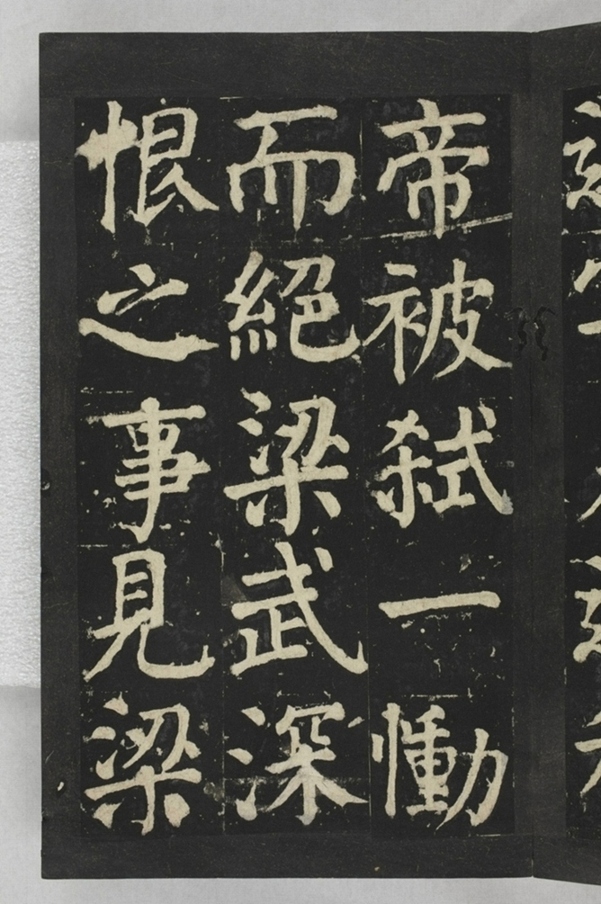 帝被弒一慟
而絕梁武深
恨之事見梁